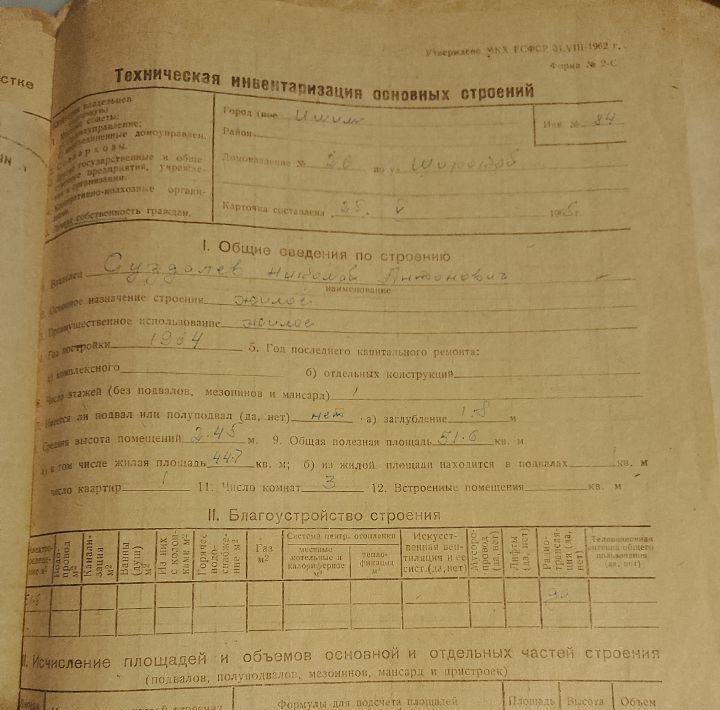 стке
Утверждено МКХ РСФСР 31.VIII-1962 г.
Форма № 2-С
Техническая инвентаризация основных строений
владельцев
советы:
управление;
объединенные домоуправлен.
государственные и обще-
предприятия, учрежде-
организации.
Кооперативно-колхозные органи-
собственность граждан.
Город Ишим
Инв. № 84
Район
Домовладение № по ул.
Карточка составлена 25. V 196 г.
I. Общие сведения по строению
Владелец Суздалев Николай Антонович
наименование
2. Основное назначение строения жилое
3. Преимущественное использование жилое
4. Год постройки 1964 5. Год последнего капитального ремонта:
а) комплексного б) отдельных конструкций
6. Число этажей (без подвалов, мезонинов и мансард) 1
7. Имеется ли подвал или полуподвал (да, нет) нет а) заглубление 1.8 м
8. Средняя высота помещений 2.45 м. 9. Общая полезная площадь 51.6 кв. м
а) в том числе жилая площадь 44.7 кв. м; б) из жилой площади находится в подвалах кв. м
число квартир 1 11. Число комнат 3 12. Встроенные помещения кв. м
II. Благоустройство строения
Водо-провод м²
Канали-зация м²
Ванны (душ) м²
Из них с колон-ками м²
Горячее водо-снабже-ние м²
Газ м²
Система центр. отопления
местные котельные и калориферное м²
тепло-фикация м²
Искусст-венная вен-тиляция и ее сист.(да,нет)
Мусоро-провод (да, нет)
Лифты (да, нет)
Радио-трансля-ция (да, нет)
Телевизионная антенна общего пользования (да, нет)
51.6 да
III. Исчисление площадей и объемов основной и отдельных частей строения
(подвалов, полуподвалов, мезонинов, мансард и пристроек)
Формулы для подсчета площадей Площадь Высота Объем